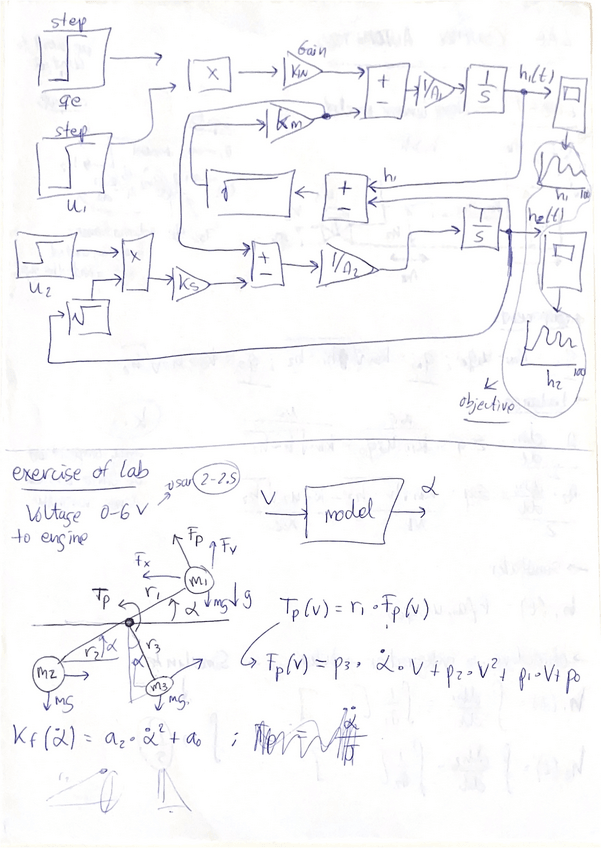 step
qe
step
u1
x
Gain
KIN
Km
+
−
1/A1
1/S
h1(t)
h1
100
h1
+
−
√
u2
x
√
KS
+
−
1/A2
1/S
h2(t)
h2
100
objective
exercise of lab
usar 2-2.5
Voltage 0-6 V
to engine
V
model
α
Fp
Fv
Fx
m1
r1
α
mg
g
Tp
r2
α
m2
mg
r3
α
m3
mg
Tp(v) = r1 · Fp(v)
Fp(v) = p3 · α̇ · V + p2 · V² + p1 · V + p0
Kf(α̇) = a2 · α̇² + a0 ;